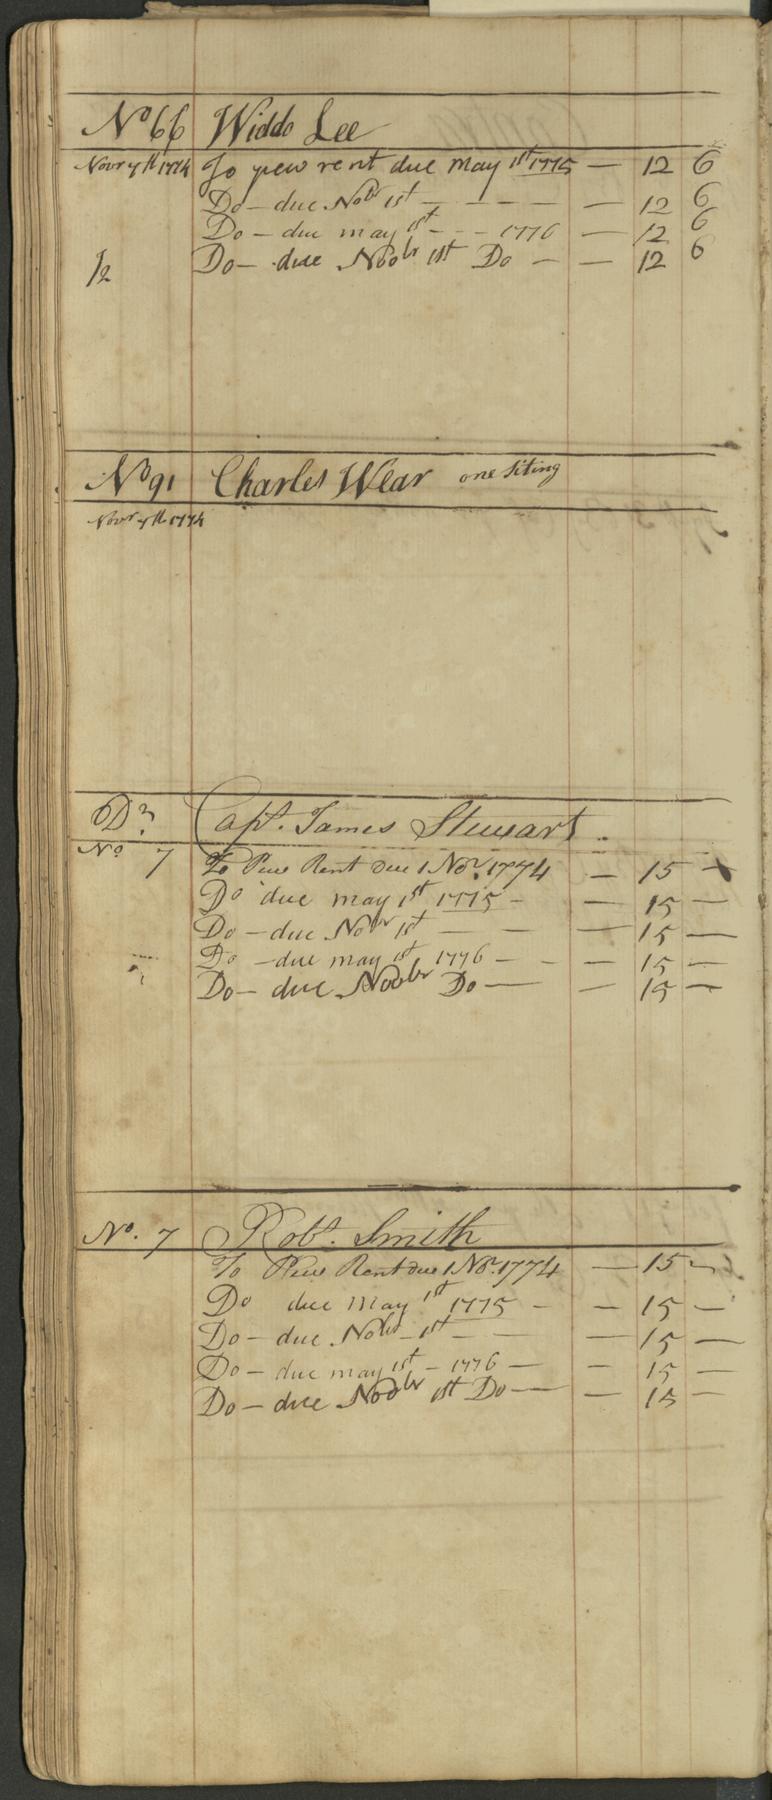 No 66 Widdo Lee
Novr 7th 1774 To pew rent due may 1st 1775 — 12 6
Do — due Nobr 1st — — — — — 12 6
Do — due may 1st - - - 1776 — 12 6
1/2 Do — due Noobr 1st Do — — 12 6
No 91 Charles Wear one Siting
Novr 7th 1774
Dr Capt. James Stewart.
No 7 To Pew Rent Due 1 Nor. 1774 — 15 —
Do due may 1st 1775 - — 15 —
Do — due Nobr 1st — — — 15 —
Do — due may 1st 1776 — - — 15 —
Do — due Noobr Do — — 15 —
No. 7 Robt. Smith
To Pew Rent due 1 Nor. 1774 — 15 —
Do due may 1st 1775 - — 15 —
Do — due Nobr 1st — — — 15 —
Do — due may 1st — 1776 — — 15 —
Do — due Noobr 1st Do — — 15 —